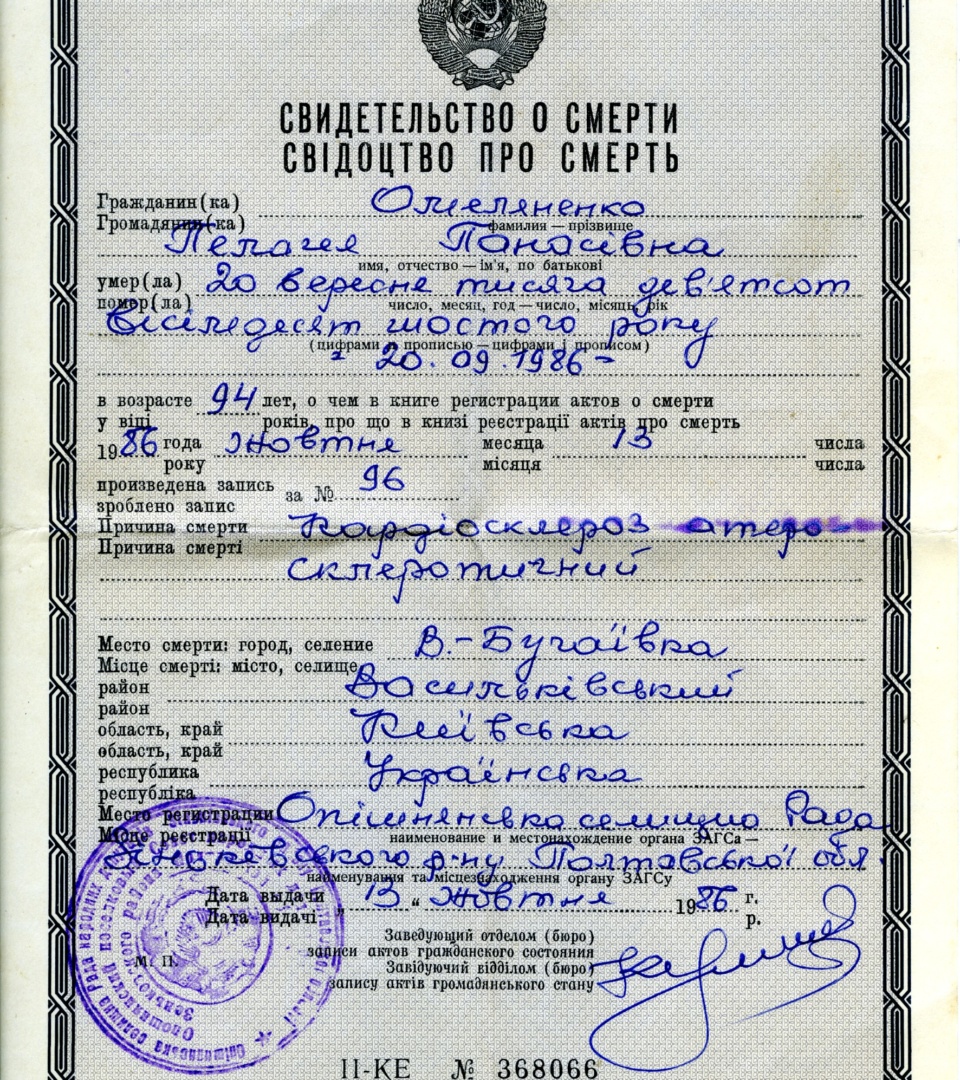 СВИДЕТЕЛЬСТВО О СМЕРТИ
СВІДОЦТВО ПРО СМЕРТЬ
Гражданин(ка) Омеляненко
Громадянин(ка) фамилия — прізвище
Пелагея Панасівна
имя, отчество — ім'я, по батькові
умер(ла) 20 вересня тисяча дев'ятсот
помер(ла) число, месяц, год — число, місяць, рік
вісімдесят шостого року
(цифрами и прописью — цифрами і прописом)
20.09.1986
в возрасте 94 лет, о чем в книге регистрации актов о смерти
у віці років, про що в книзі реєстрації актів про смерть
1986 года Жовтня месяца 13 числа
року місяця числа
произведена запись за № 96
зроблено запис
Причина смерти Кардіосклероз атеро-
Причина смерті
склеротичний
Место смерти: город, селение В.-Бугаївка
Місце смерті: місто, селище
район Васильківський
район
область, край Київська
область, край
республика Українська
республіка
Место регистрации Опішнянська селищна Рада
Місце реєстрації наименование и местонахождение органа ЗАГСа —
р-ну Полтавської обл.
найменування та місцезнаходження органу ЗАГСу
Дата выдачи „ 13 “ Жовтня 1986 г.
Дата видачі р.
Заведующий отделом (бюро)
записи актов гражданского состояния
Завідуючий відділом (бюро)
запису актів громадянського стану
М. П.
II-КЕ № 368066